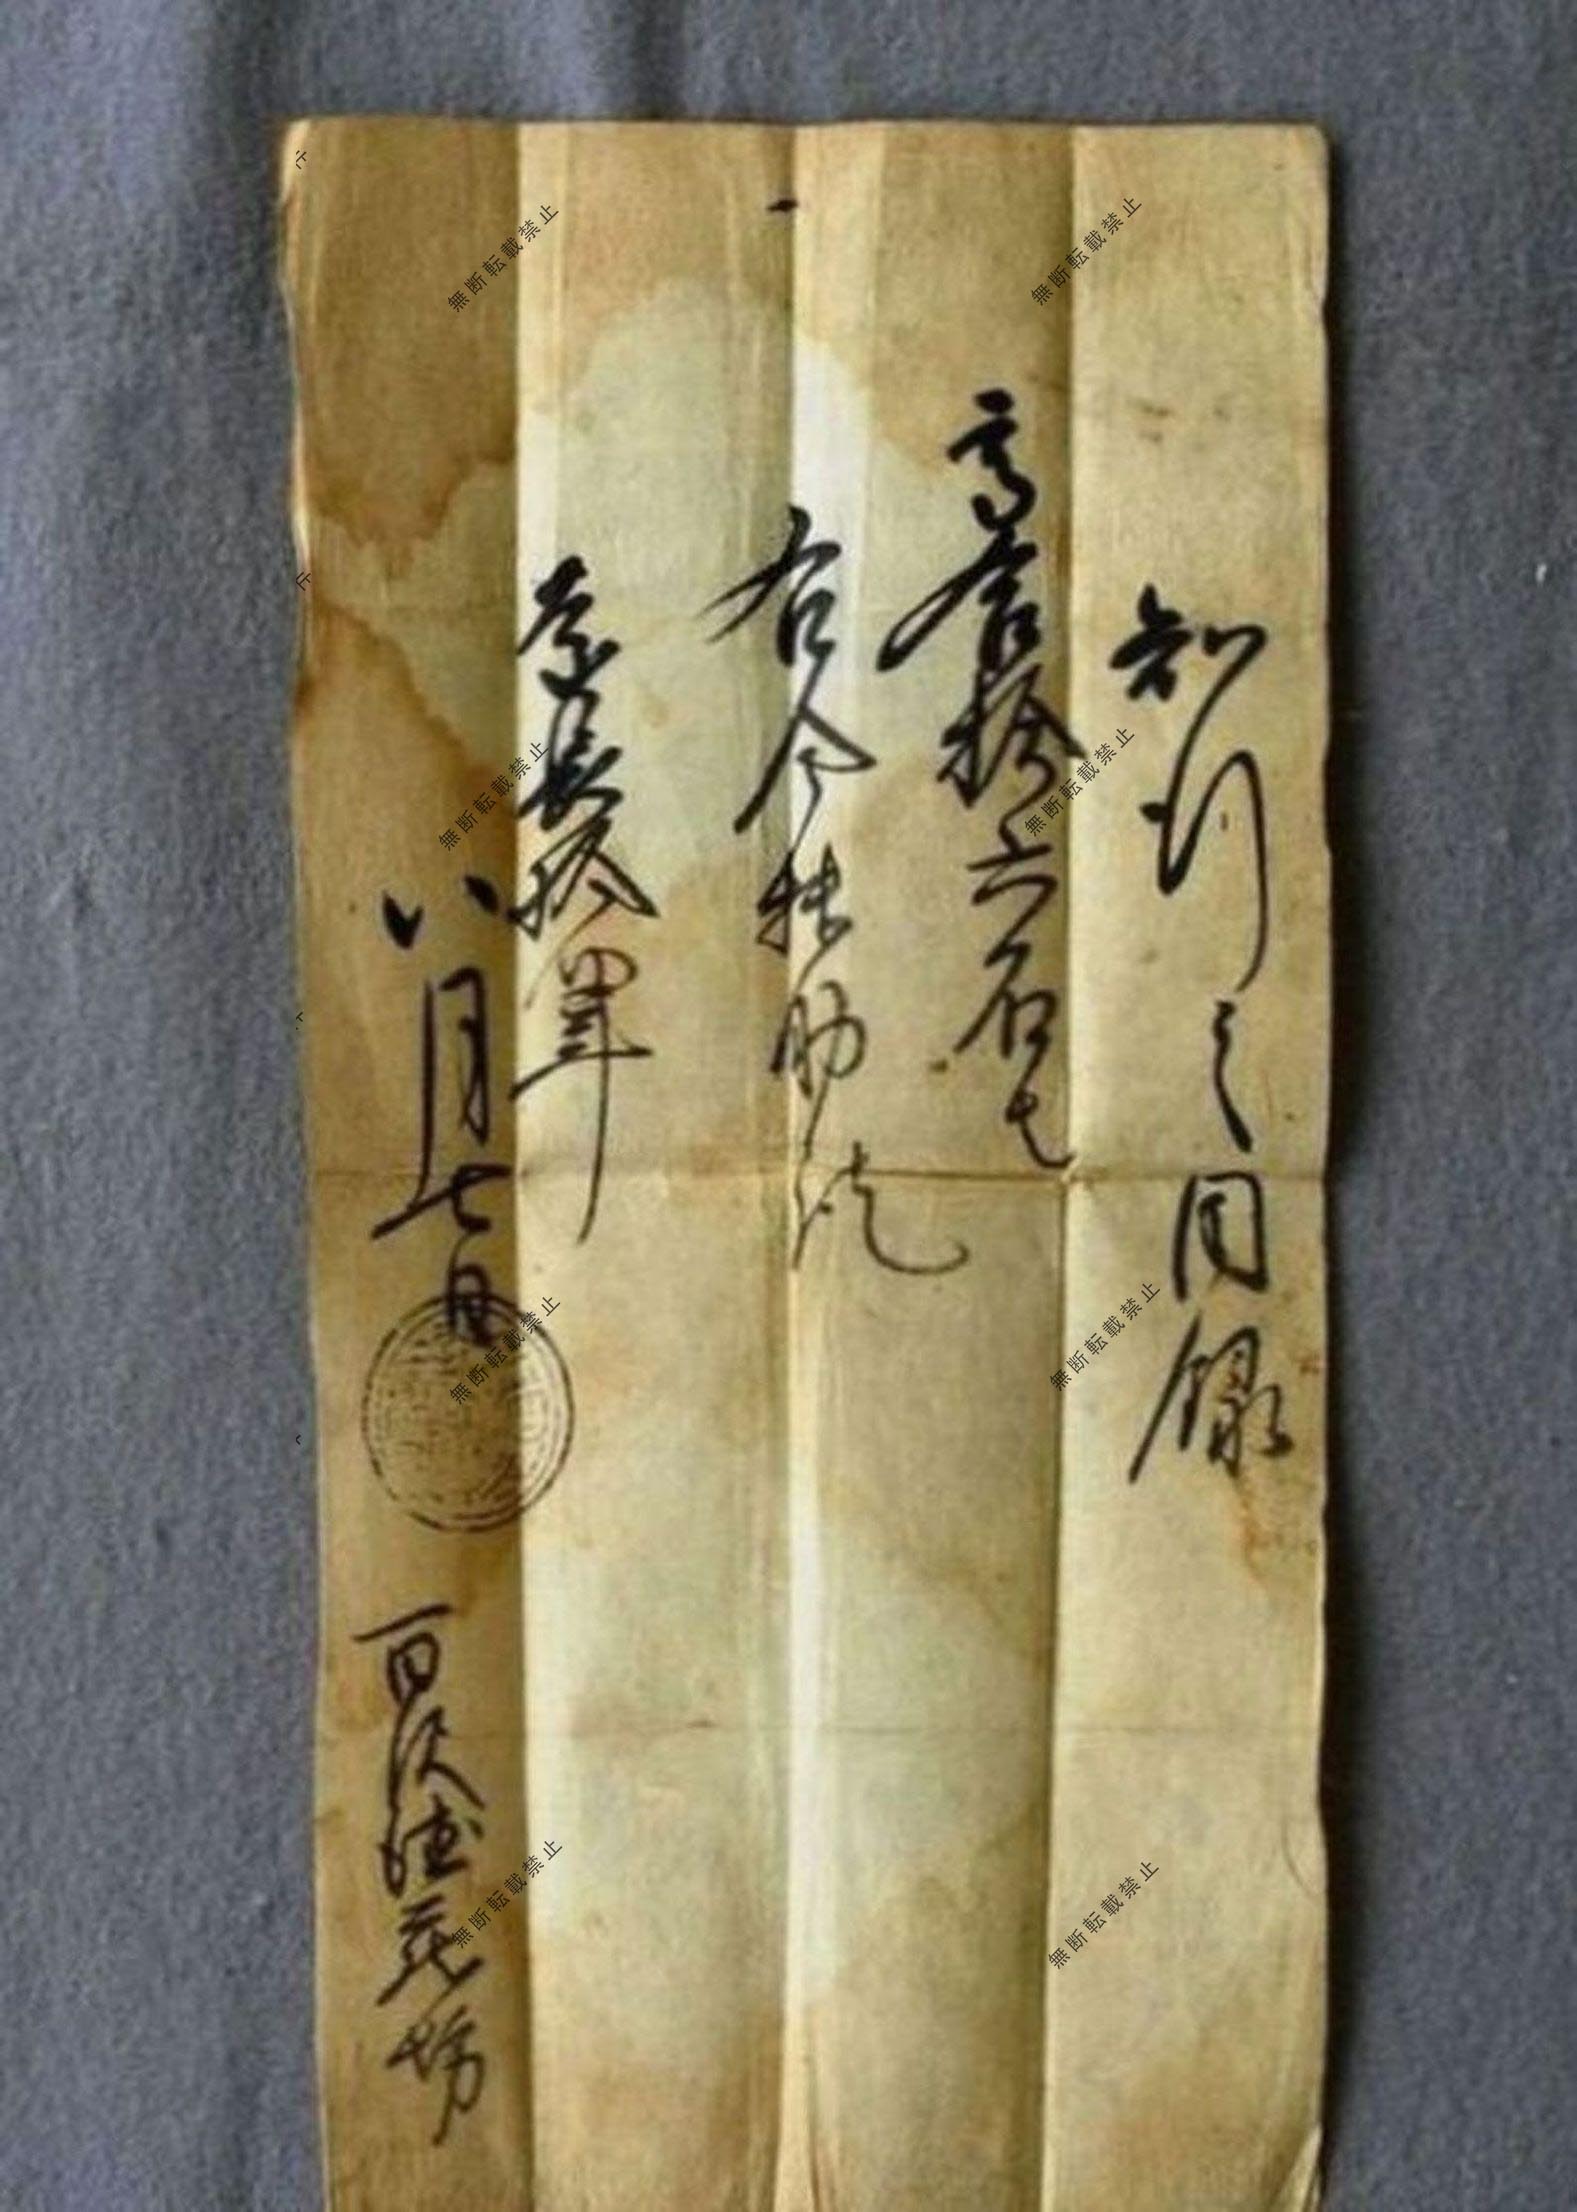 知行之目録
一
高合拾六石也
右令扶助訖
慶長拾四年
八月七日
百次徳蔵坊
無断転載禁止
無断転載禁止
無断転載禁止
無断転載禁止
無断転載禁止
無断転載禁止
無断転載禁止
無断転載禁止